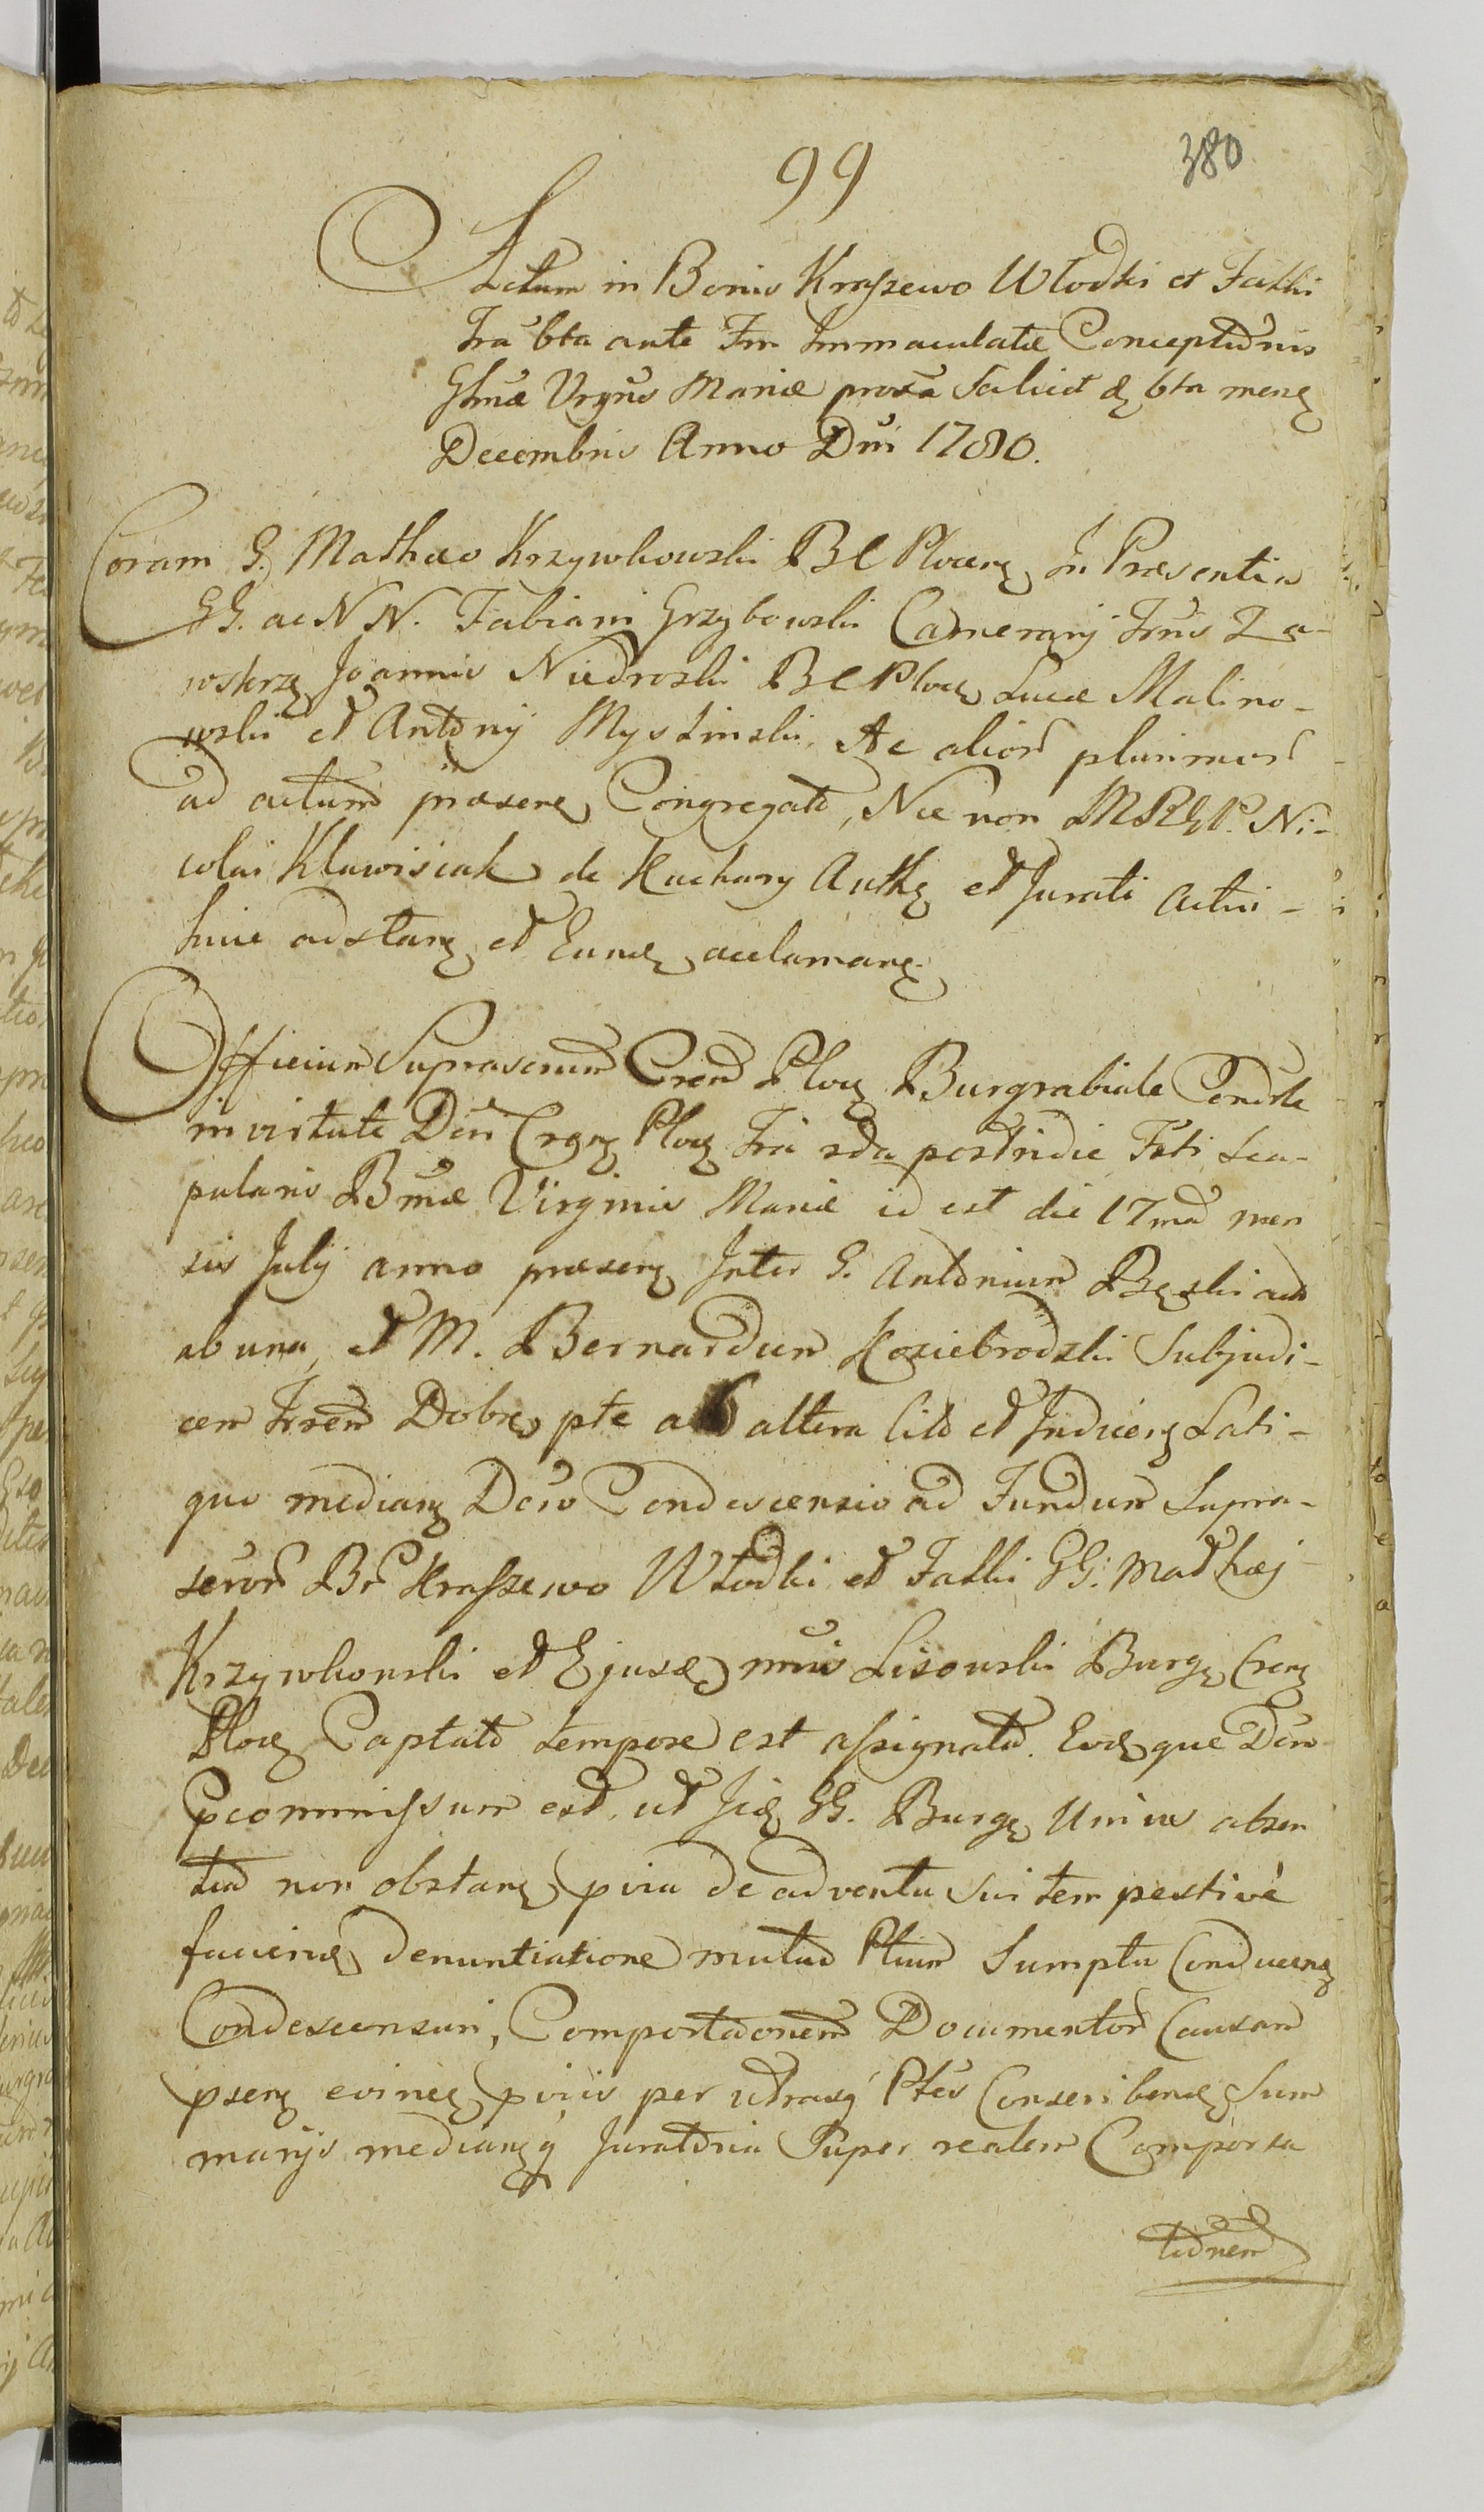 99
380
Actum in Bonis Kraszewo Włodki et Falki
Fra 6ta ante Fm Immaculatæ Conceptionis
Gssmæ Vrgnis Mariæ proxa Scilicet d. 6ta mens
Decembris Anno Dni 1780.
Coram G. Mathæo Krzywkowski BC Plocen, In Præsentia
GG. ac NN. Fabiani Grzybowski Camerarij Trris Za-
wskrz, Joannis Niedroski BC Ploc, Lucæ Malino-
wski et Antonij Mysliński, Ac alior plurimor
ad actum præsen, Congregato, Nec non MREP. Ni-
colai Klawisiak de Kuchary Auth et Jurati actui
huic adstan, et Eund acclaman.
Officium Suprascrium Cren Ploc Burgrabiale Condsle
in virtute Dcri Crgen Ploc Fria 2da postridie Fsti Sca-
pularis Bmæ Virginis Mariæ id est die 17ma men
sis Julij anno præsen Inter G. Antonium Bęski act
ab una, et M. Bernardum Koziebrodzki Subjudi-
cem Trrem Dobr, pte ab altera cito et Inducen Lati-
quo median Dcro Condescensio ad Fundum Supra-
scror Br Kraszewo Włodki et Falki GG. Mathæj
Krzywkowski et Ejusd nnis Lisowski Burg, Cren
Ploc Captato tempore est assignata. Eodque Dcro
pcommissum est, ut Iid GG. Burg Unius absen
tia non obstan, pvia de adventu sui tempestivè
faciend denuntiatione mutuo Ptium Sumptu Conducend
Condescensuri, Comportaonem Documentor Causam
psen evinc, pvijs per utrasq Ptes Conscribend Sum
marijs medianq Juratoria Super realem Comporta
tionem